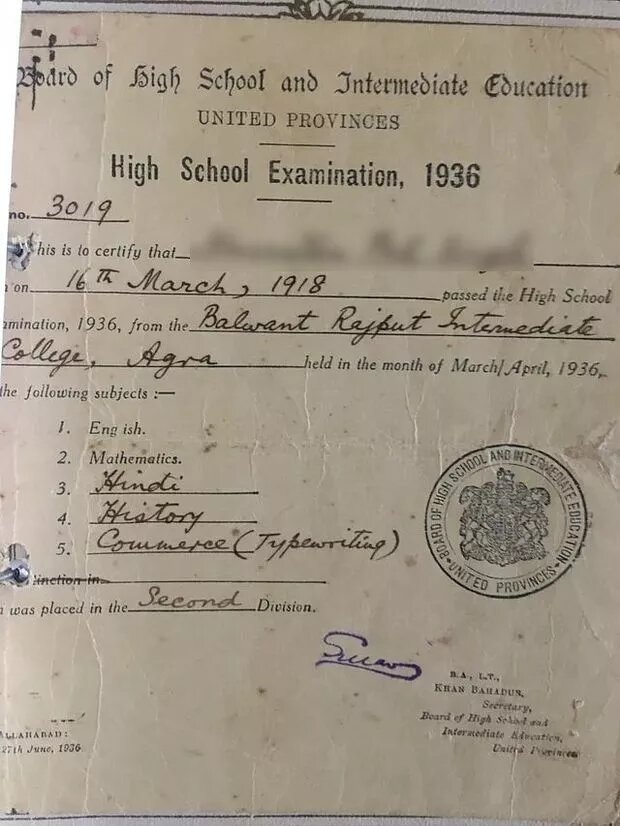 Board of High School and Intermediate Education
UNITED PROVINCES
High School Examination, 1936
no. 3019
his is to certify that
on 16th March, 1918 passed the High School
amination, 1936, from the Balwant Rajput Intermediate
College, Agra held in the month of March/April, 1936,
the following subjects :—
1. Eng ish.
2. Mathematics.
3. Hindi
4. History
5. Commerce (Typewriting)
inction in
was placed in the Second Division.
BOARD OF HIGH SCHOOL AND INTERMEDIATE EDUCATION
UNITED PROVINCES
B.A., L.T.,
KHAN BAHADUR,
Secretary,
Board of High School and
Intermediate Education,
United Provinces
ALLAHABAD:
27th June, 1936